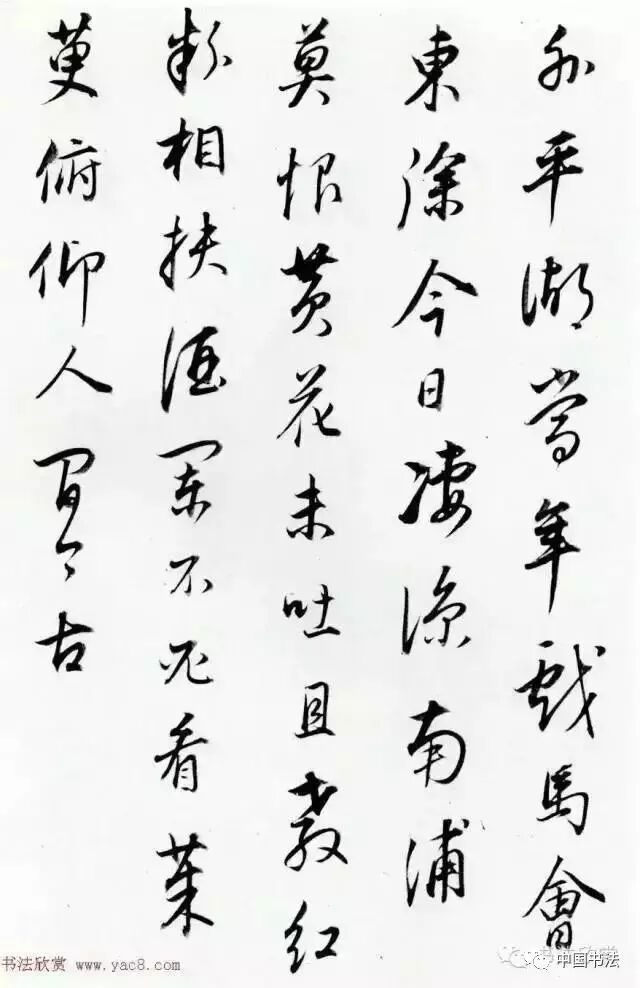 外平湖當年戲馬會
東徐今日凄涼南浦
莫恨黄花未吐且教紅
粉相扶酒闌不必看茱
萸俯仰人間今古
书法欣赏 www.yac8.com
中国书法